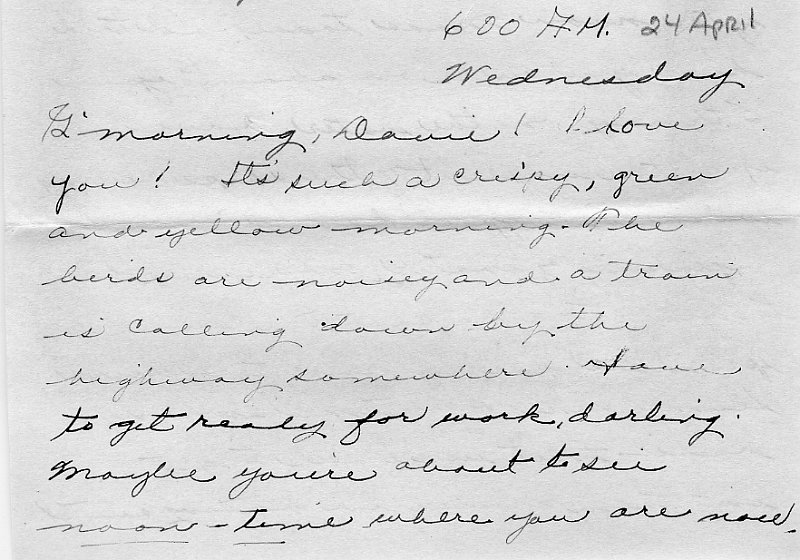 600 A.M. 24 April
Wednesday
G'morning, Davie! I love
you! It's such a crispy, green
and yellow morning. The
birds are noisey and a train
is calling down by the
highway somewhere. Have
to get ready for work, darling.
Maybe you're about to see
noon-time where you are now.